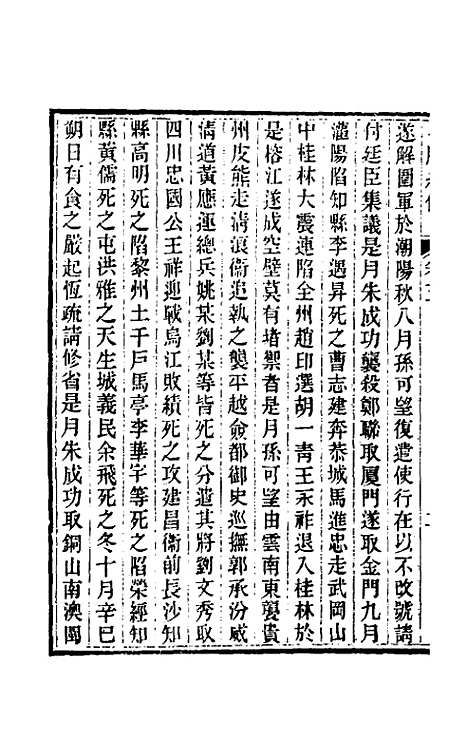 遂解圍軍於潮陽秋八月孫可望復遣使行在以不改號請
付廷臣集議是月朱成功襲殺鄭聯取厦門遂取金門九月
灌陽陷知縣李遇昇死之曹志建奔恭城馬進忠走武岡山
中桂林大震連陷全州趙印選胡一青王永祚退入桂林於
是榕江遂成空壁莫有堵禦者是月孫可望由雲南東襲貴
州皮熊走清浪衞追執之襲平越僉都御史巡撫郭承汾威
清道黃應運總兵姚某劉某等皆死之分遣其將劉文秀取
四川忠國公王祥迎戰烏江敗績死之攻建昌衞前長沙知
縣高明死之陷黎州土千戶馬亭李華宇等死之陷榮經知
縣黃儒死之屯洪雅之天生城義民余飛死之冬十月辛巳
朔日有食之嚴起恆疏請修省是月朱成功取銅山南澳閩